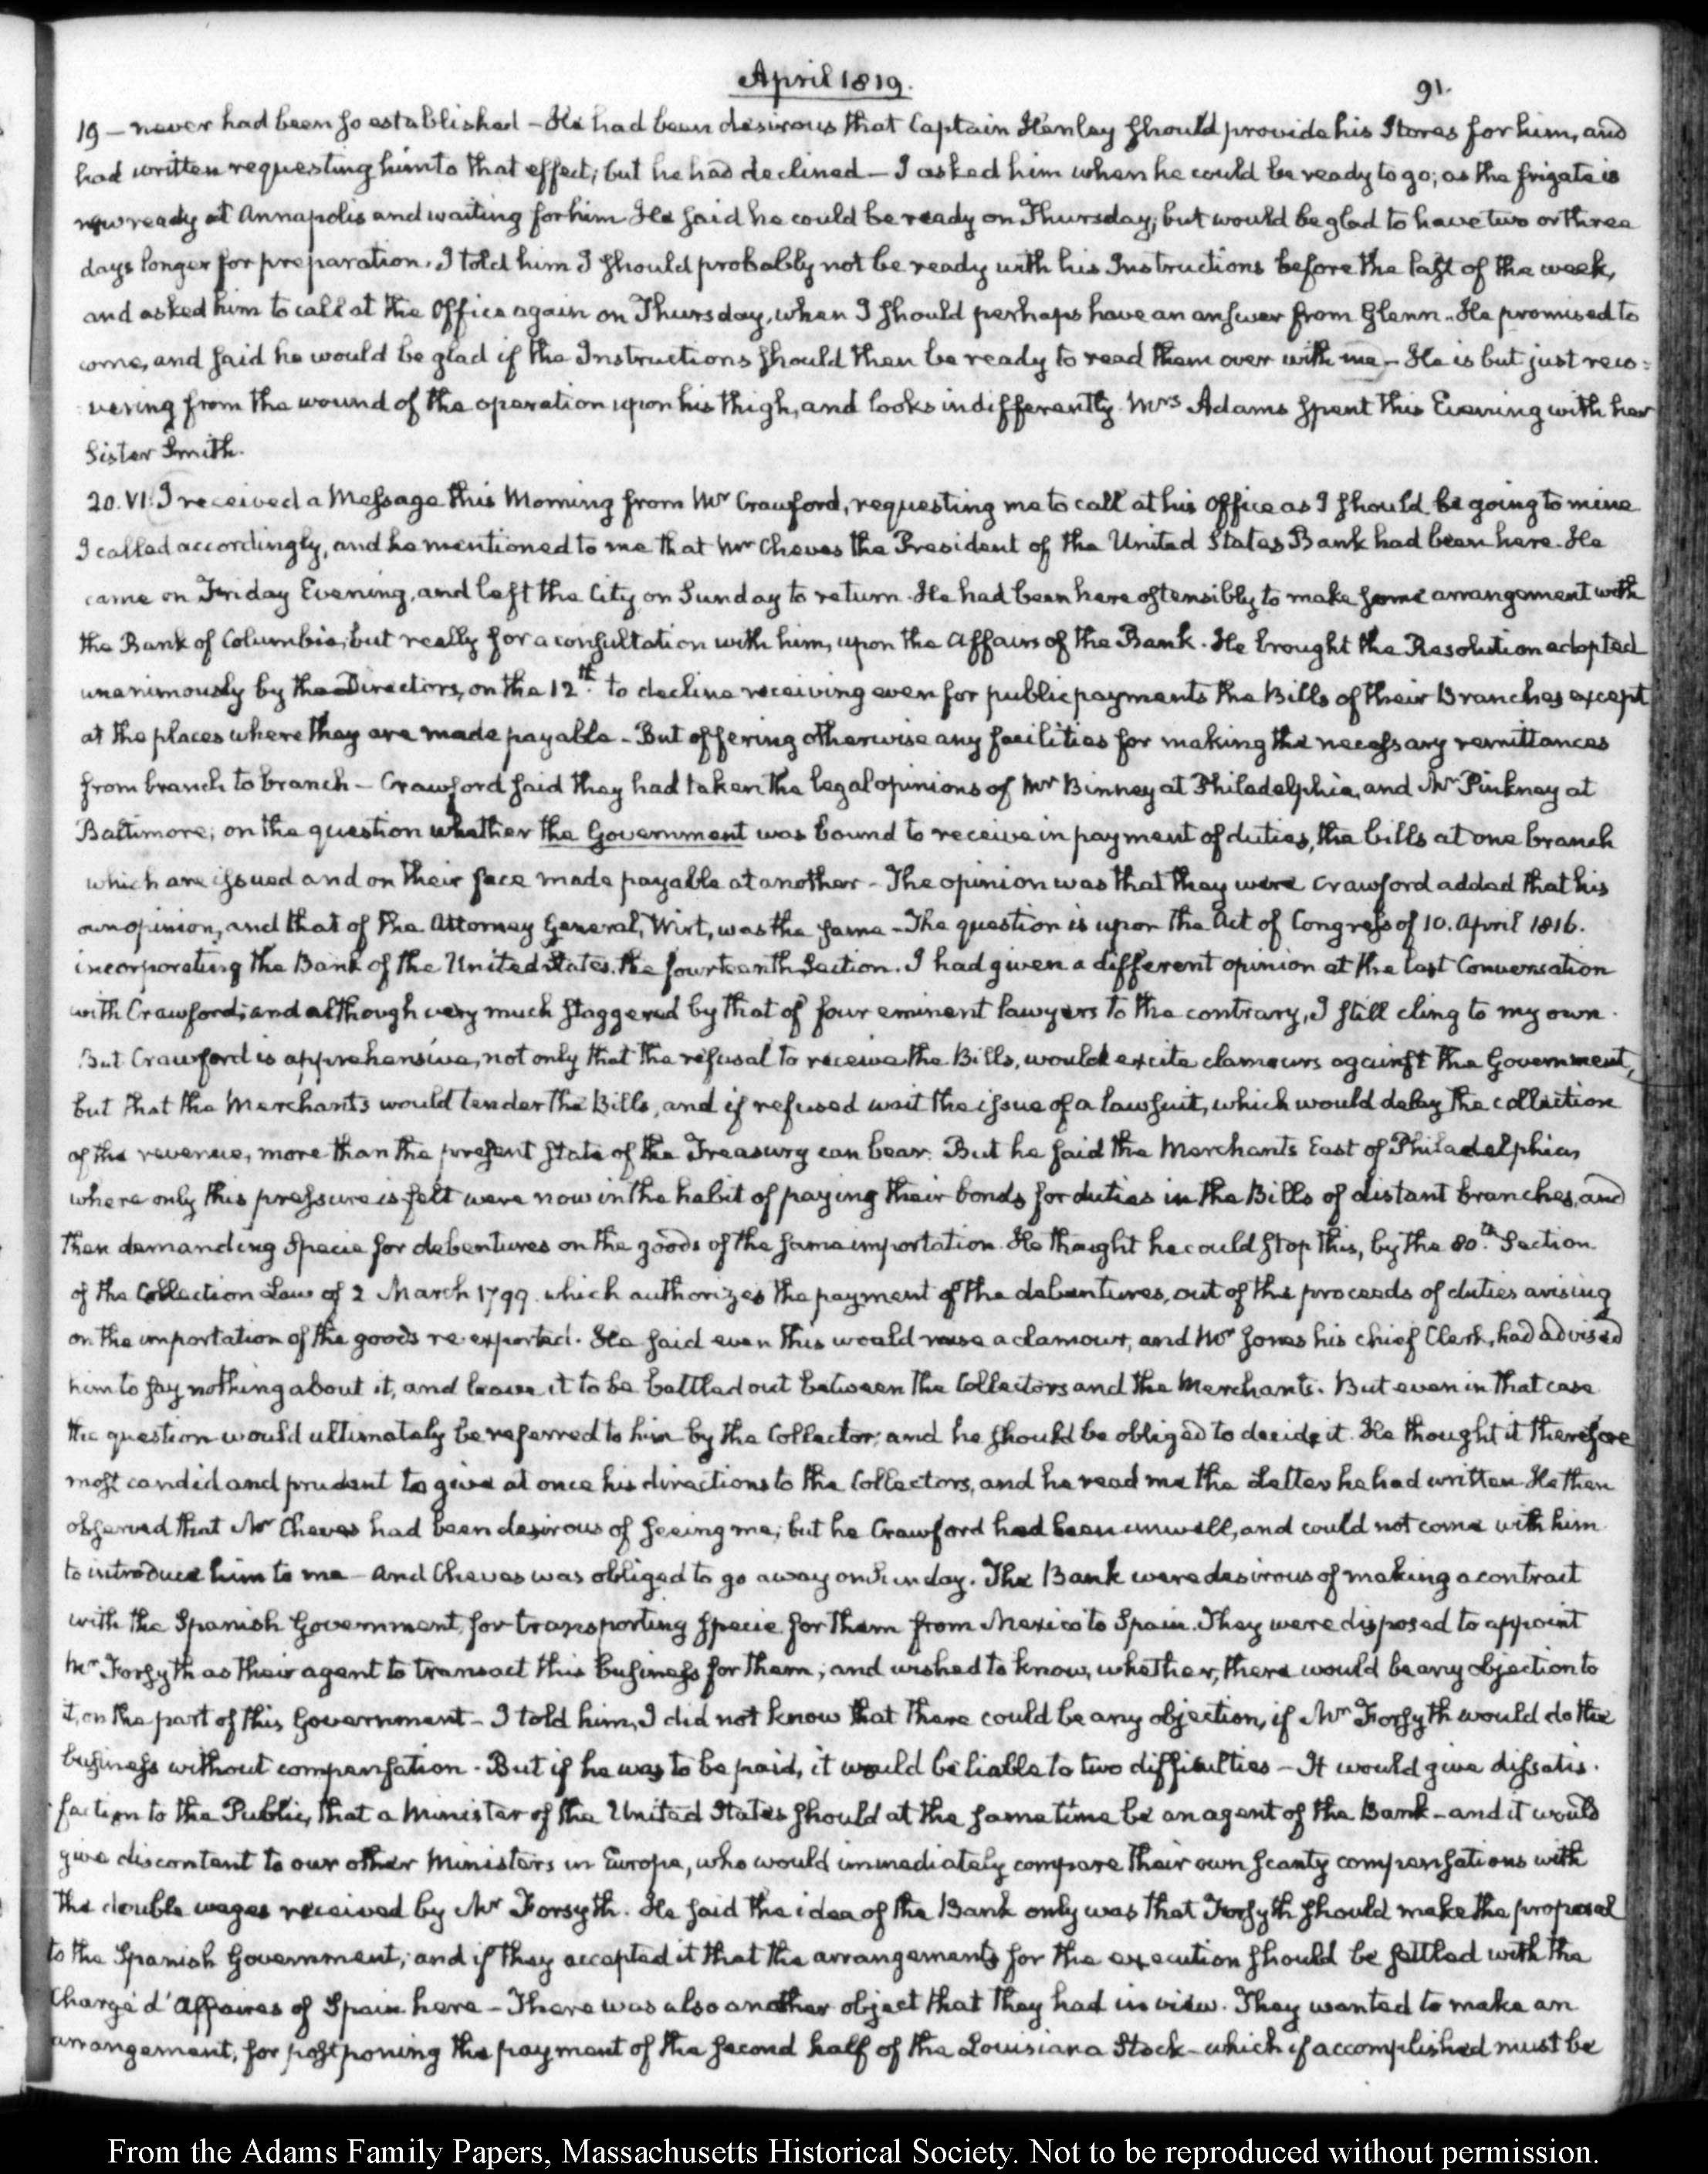 April 1819.
91.
19 — never had been so established – He had been desirous that Captain Henley should provide his Stores for him, and
had written requesting him to that effect; but he had declined — I asked him when he could be ready to go; as the frigate is
now ready at Annapolis and waiting for him. He said he could be ready on Thursday; but would be glad to have two or three
days longer for preparation. I told him I should probably not be ready with his Instructions before the last of the week,
and asked him to call at the Office again on Thursday, when I should perhaps have an answer from Glenn. He promised to
come, and said he would be glad if the Instructions should then be ready to read them over with me – He is but just reco=
:vering from the wound of the operation upon his thigh, and looks indifferently. Mrs Adams spent this Evening with her
Sister Smith.
20. VI. I received a Message this Morning from Mr Crawford, requesting me to call at his Office as I should be going to mine
I called accordingly, and he mentioned to me that Mr Cheves the President of the United States Bank had been here. He
came on Friday Evening, and left the City on Sunday to return. He had been here ostensibly to make some arrangement with
the Bank of Columbia, but really for a consultation with him, upon the Affairs of the Bank. He brought the Resolution adopted
unanimously by the Directors, on the 12th. to decline receiving even for public payments the Bills of their Branches except
at the places where they are made payable – But offering otherwise any facilities for making the necessary remittances
from branch to branch – Crawford said they had taken the legal opinions of Mr Binney at Philadelphia, and Mr Pinkney at
Baltimore; on the question whether the Government was bound to receive in payment of duties, the bills at one branch
which are issued and on their face made payable at another – The opinion was that they were Crawford added that his
own opinion, and that of the Attorney General, Wirt, was the same – The question is upon the Act of Congress of 10. April 1816.
incorporating the Bank of the United States. the fourteenth Section. I had given a different opinion at the last Conversation
with Crawford; and although very much staggered by that of four eminent lawyers to the contrary, I still cling to my own.
But Crawford is apprehensive, not only that the refusal to receive the Bills, would excite clamours against the Government,
but that the Merchants would tender the Bills, and if refused wait the issue of a lawsuit, which would delay the collection
of the revenue, more than the present state of the Treasury can bear. But he said the Merchants East of Philadelphia,
where only this pressure is felt were now in the habit of paying their bonds for duties in the Bills of distant branches, and
then demanding Specie for debentures on the goods of the same importation. He thought he could stop this, by the 80th. Section
of the Collection Law of 2 March 1799. which authorizes the payment of the debentures, out of the proceeds of duties arising
on the importation of the goods re-exported. He said even this would raise a clamour, and Mr Jones his chief Clerk, had advised
him to say nothing about it, and leave it to be battled out between the Collectors and the Merchants. But even in that case
the question would ultimately be referred to him by the Collector; and he should be obliged to decide it. He thought it therefore
most candid and prudent to give at once his directions to the Collectors, and he read me the Letter he had written. He then
observed that Mr Cheves had been desirous of seeing me; but he Crawford had been unwell, and could not come with him
to introduce him to me – And Cheves was obliged to go away on Sunday. The Bank were desirous of making a contract
with the Spanish Government, for transporting specie for them from Mexico to Spain. They were disposed to appoint
Mr Forsyth as their agent to transact this business for them; and wished to know, whether, there would be any objection to
it, on the part of this Government – I told him, I did not know that there could be any objection, if Mr Forsyth would do the
business without compensation. But if he was to be paid, it would be liable to two difficulties – It would give dissatis.
faction to the Public, that a Minister of the United States should at the same time be an agent of the Bank – and it would
give discontent to our other Ministers in Europe, who would immediately compare their own scanty compensations with
the double wages received by Mr Forsyth. He said the idea of the Bank only was that Forsyth should make the proposal
to the Spanish Government; and if they accepted it that the arrangements for the execution should be settled with the
Chargé d'Affaires of Spain here – There was also another object that they had in view. They wanted to make an
arrangement, for postponing the payment of the second half of the Louisiana Stock – which if accomplished must be
From the Adams Family Papers, Massachusetts Historical Society. Not to be reproduced without permission.